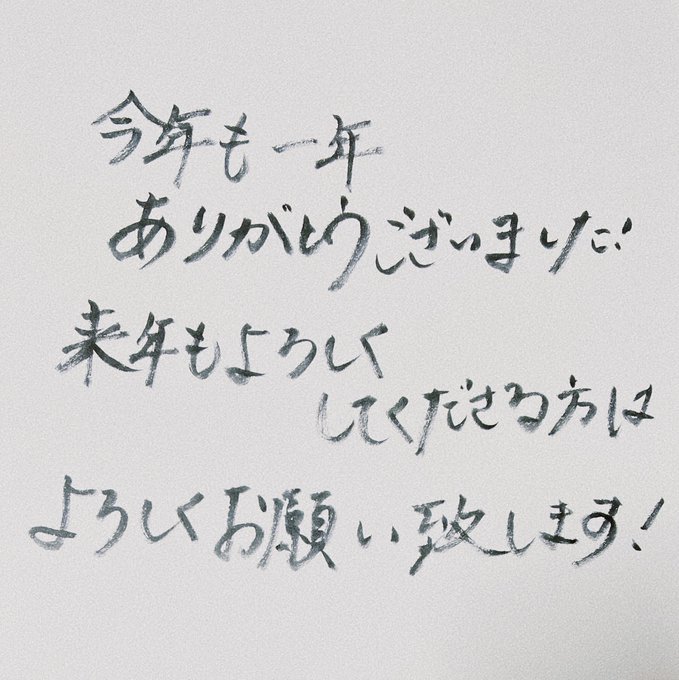 今年も一年
ありがとうございました!
来年もよろしく
してくださる方は
よろしくお願い致します!